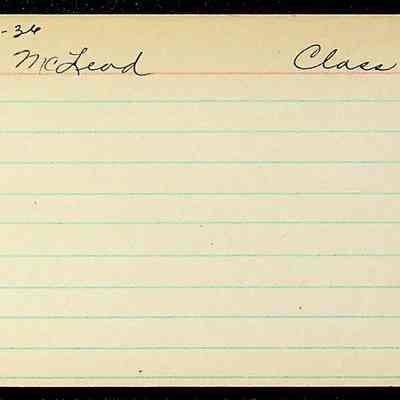 -36
McLeod Class